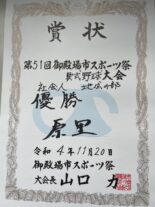 賞状
第51回御殿場市スポーツ祭
軟式野球大会
社会人 地区の部
優勝
原里
令和4年11月20日
御殿場市スポーツ祭
大会長 山口 力